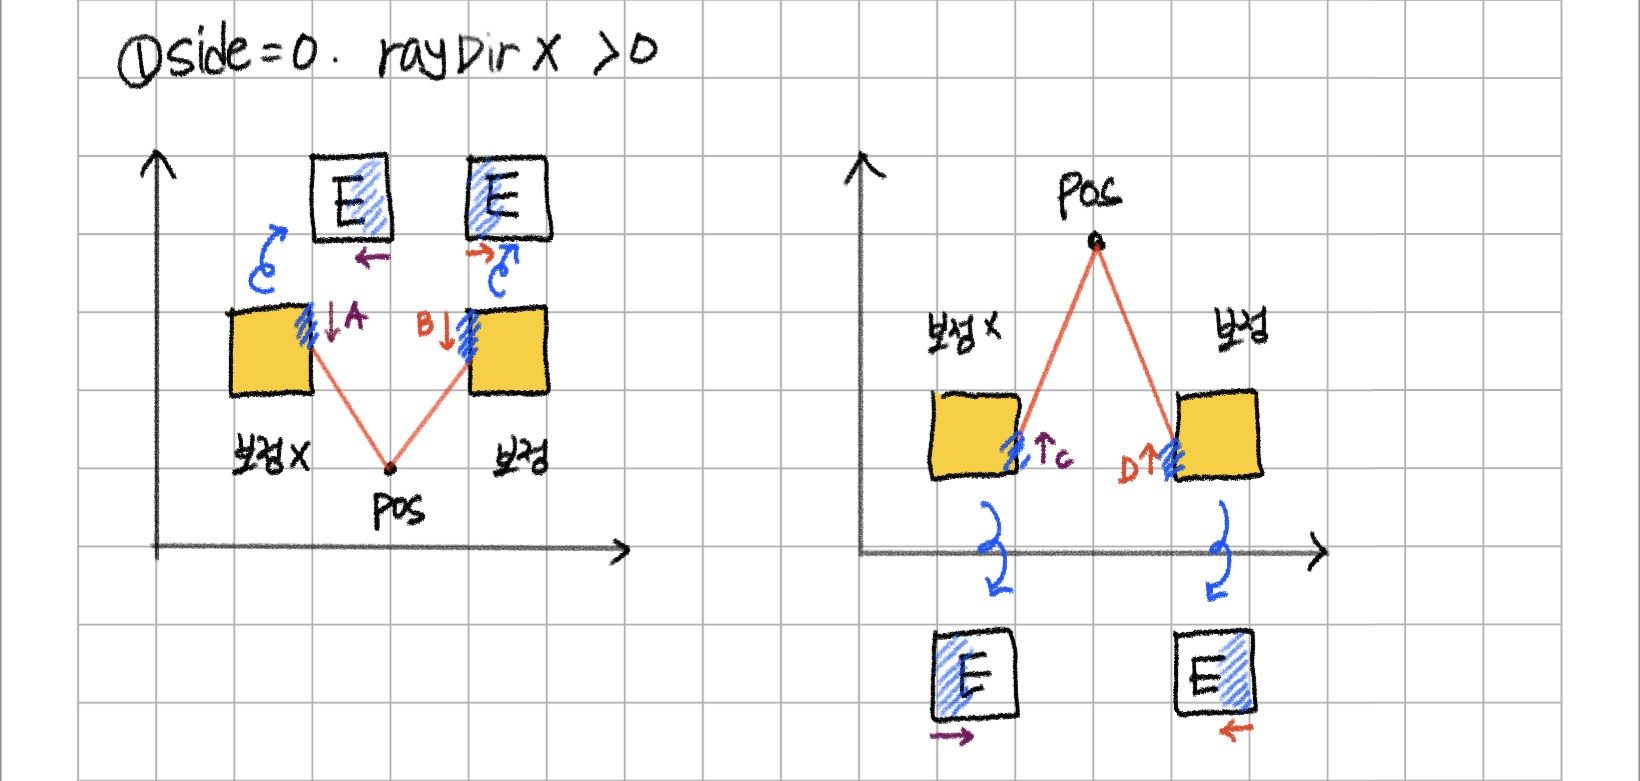 ① side=0. rayDirX >0
E
E
A
B
보정X
보정
pos
pos
보정X
보정
C
D
E
E